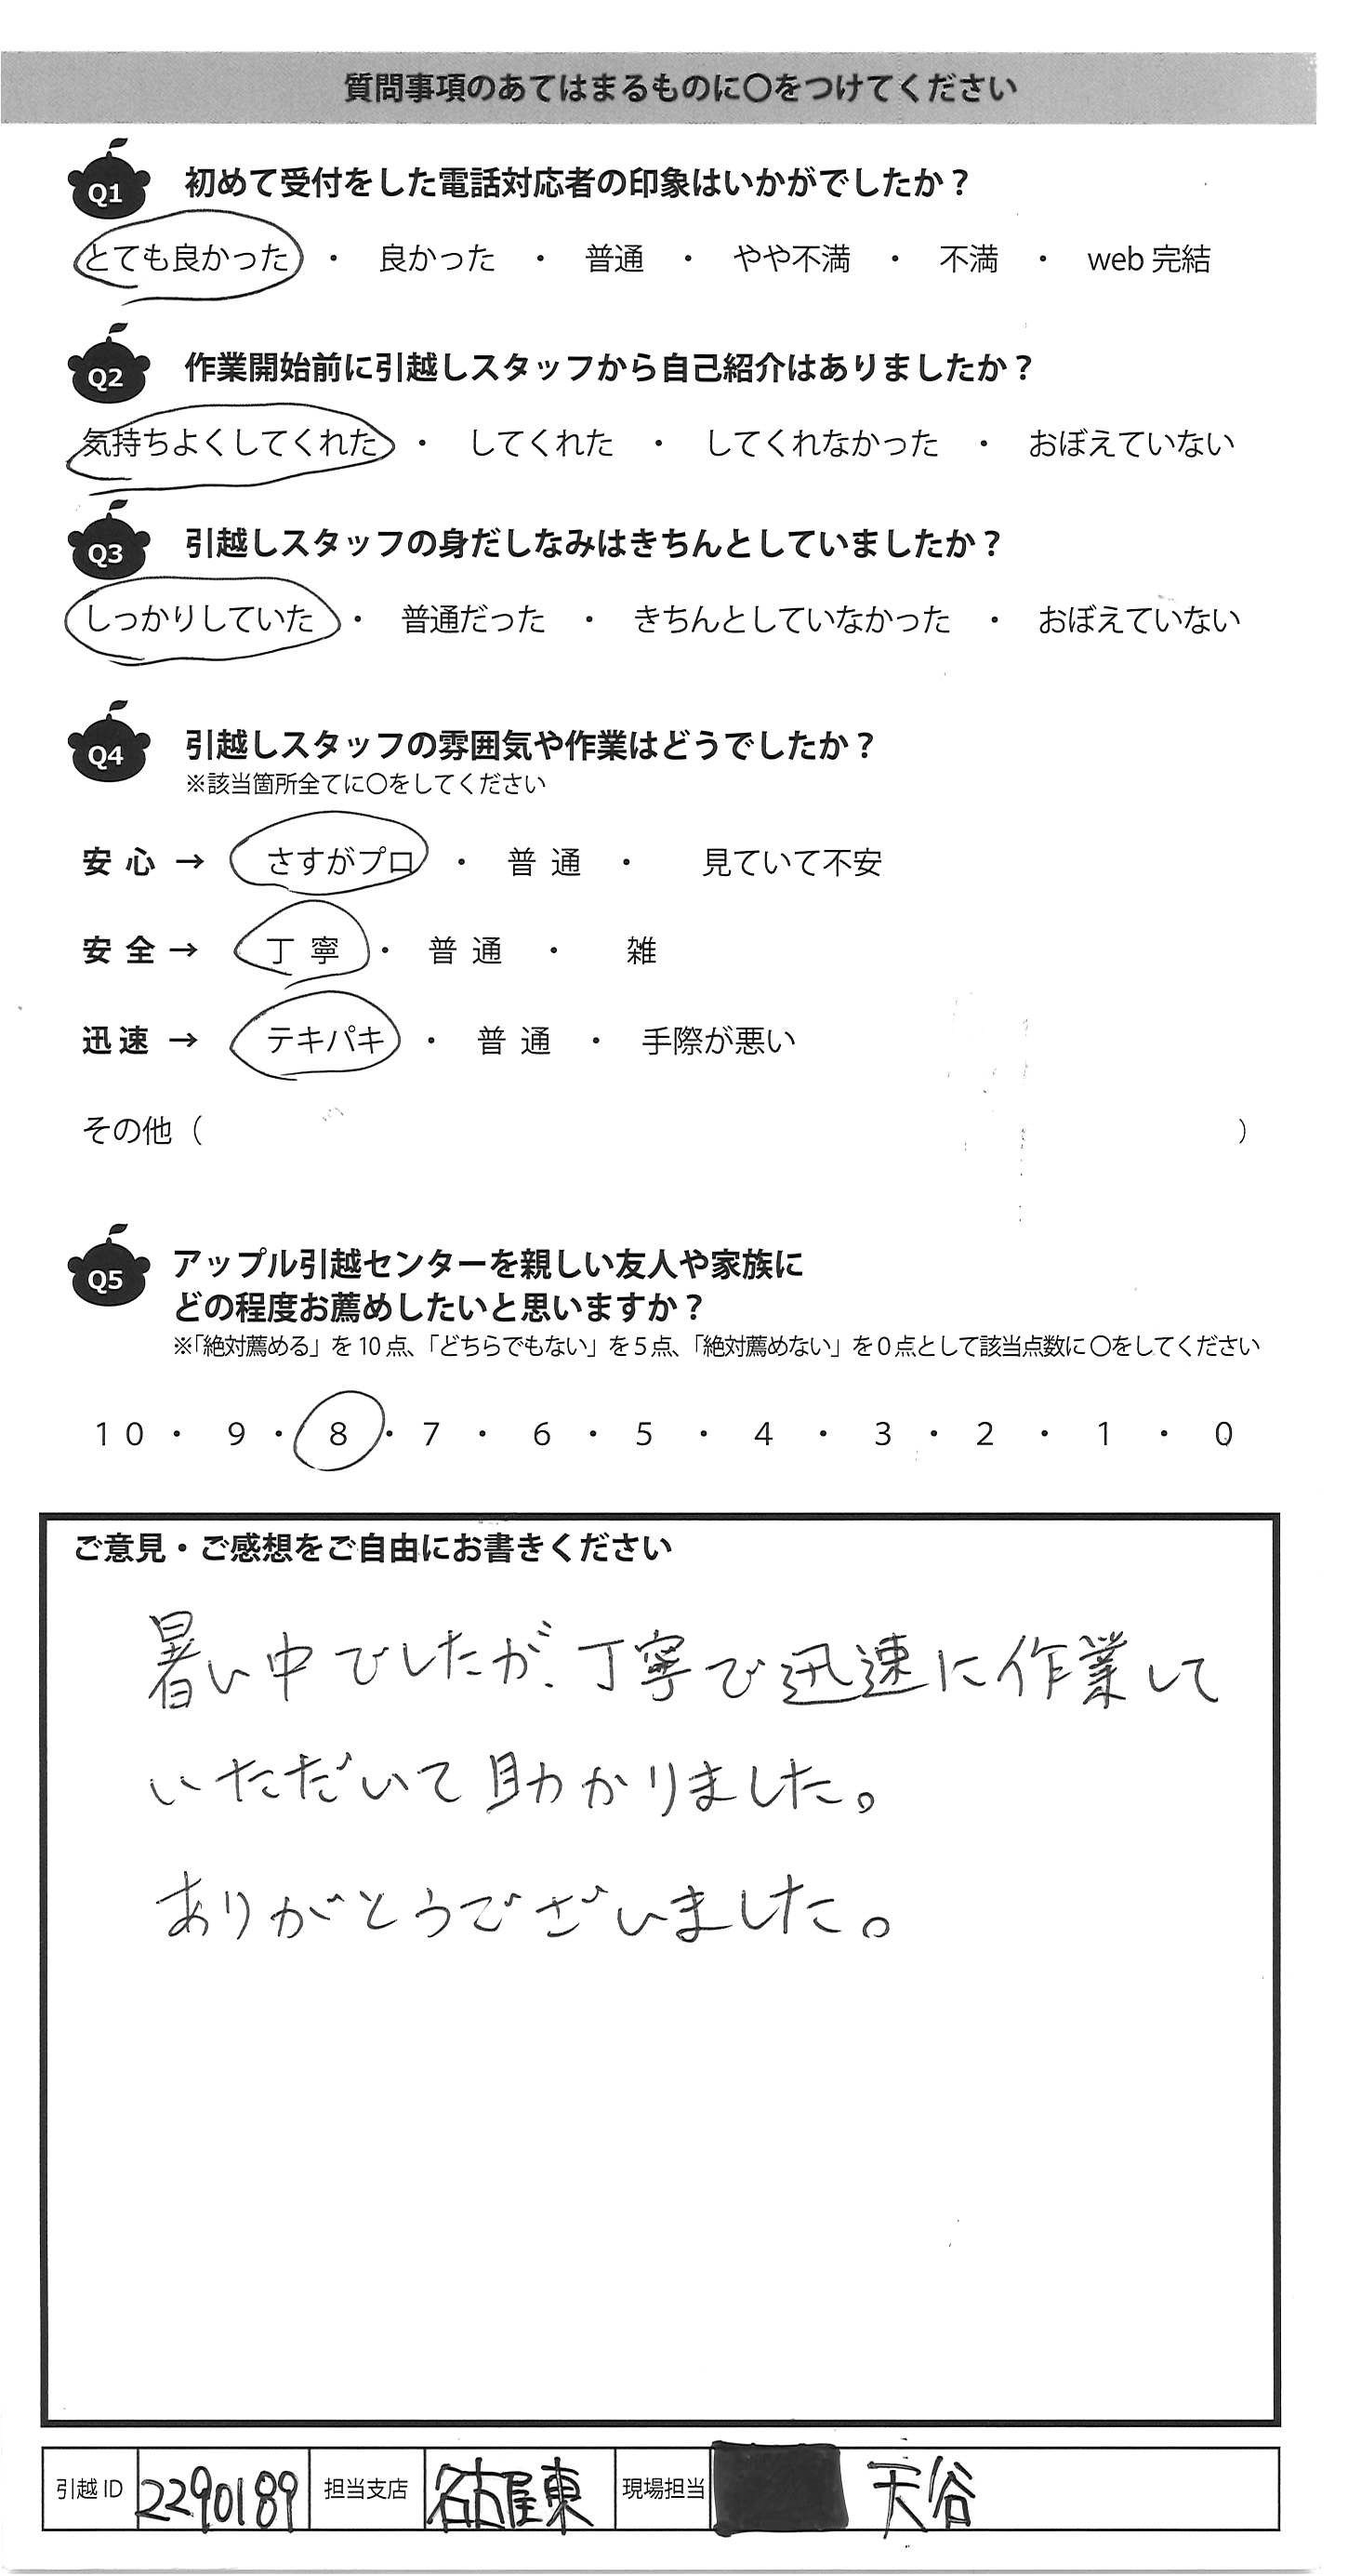 質問事項のあてはまるものに〇をつけてください
Q1 初めて受付をした電話対応者の印象はいかがでしたか？
とても良かった ・ 良かった ・ 普通 ・ やや不満 ・ 不満 ・ web 完結
Q2 作業開始前に引越しスタッフから自己紹介はありましたか？
気持ちよくしてくれた ・ してくれた ・ してくれなかった ・ おぼえていない
Q3 引越しスタッフの身だしなみはきちんとしていましたか？
しっかりしていた ・ 普通だった ・ きちんとしていなかった ・ おぼえていない
Q4 引越しスタッフの雰囲気や作業はどうでしたか？
※該当箇所全てに〇をしてください
安 心 → さすがプロ ・ 普 通 ・ 見ていて不安
安 全 → 丁 寧 ・ 普 通 ・ 雑
迅 速 → テキパキ ・ 普 通 ・ 手際が悪い
その他（ ）
Q5 アップル引越センターを親しい友人や家族に
どの程度お薦めしたいと思いますか？
※「絶対薦める」を 10 点、「どちらでもない」を 5 点、「絶対薦めない」を 0 点として該当点数に 〇をしてください
10 ・ 9 ・ 8 ・ 7 ・ 6 ・ 5 ・ 4 ・ 3 ・ 2 ・ 1 ・ 0
ご意見・ご感想をご自由にお書きください
暑い中でしたが、丁寧で迅速に作業して
いただいて助かりました。
ありがとうございました。
引越 ID 2290189 担当支店 名古屋東 現場担当 天谷